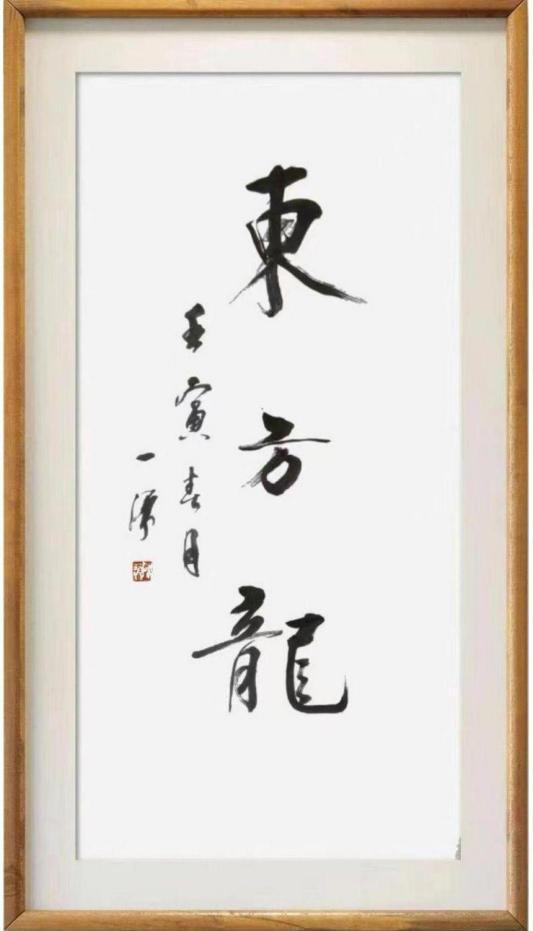 東方龍
壬寅春月
一